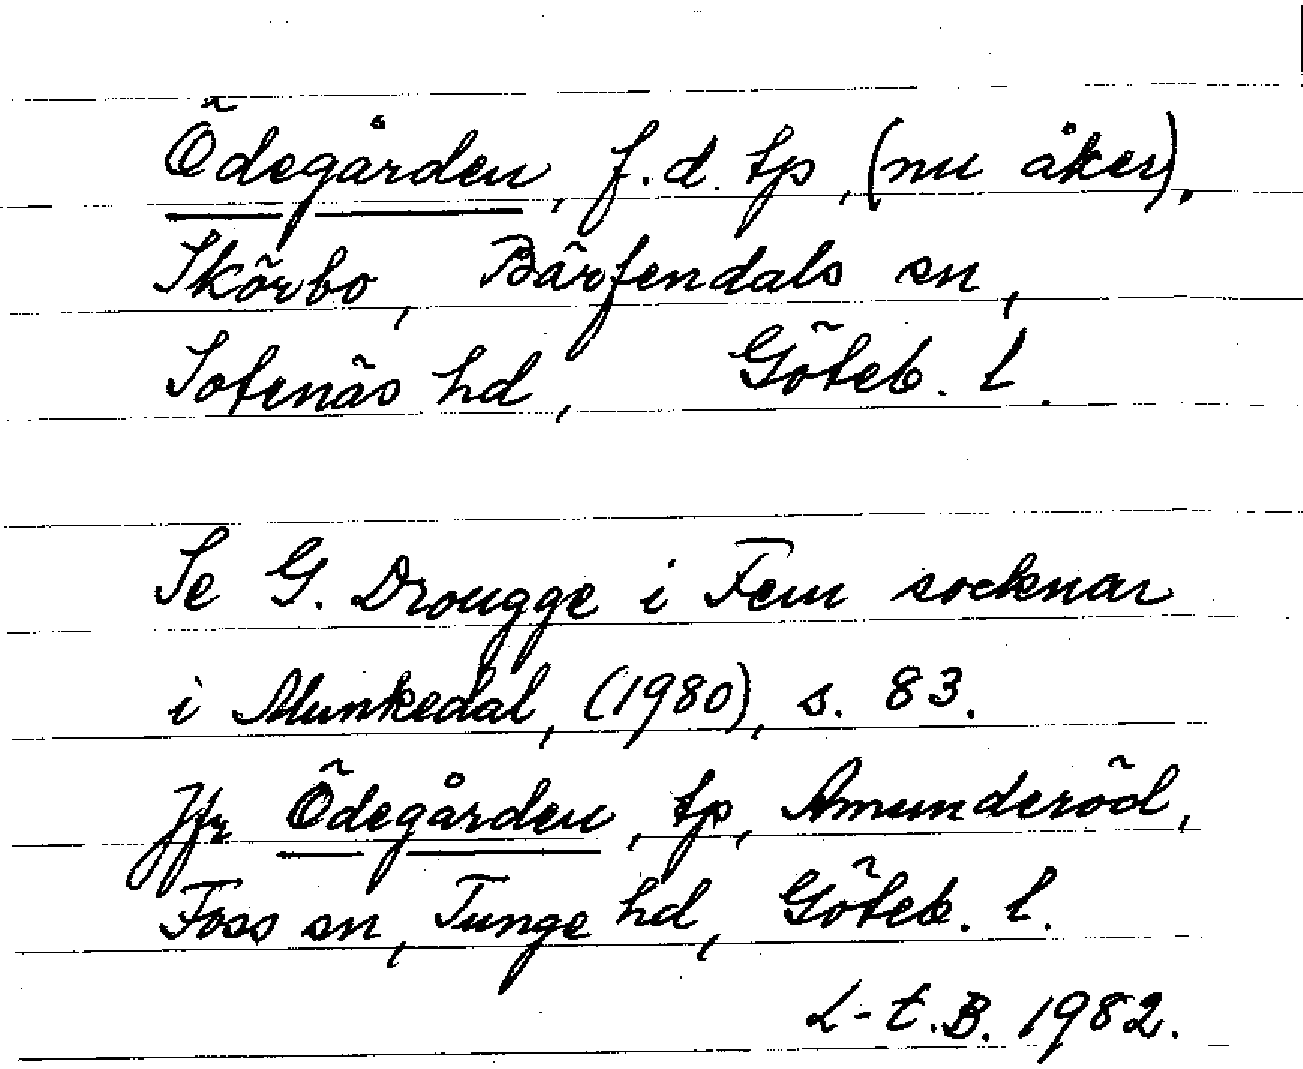 Ödegården, f.d. tp, (nu åker),
Skörbo, Bärfendals sn,
Sotenäs hd, Göteb. l.
Se G. Drougge i Fem socknar
i Munkedal, (1980), s. 83.
Jfr Ödegården, tp, Amunderöd,
Foss sn, Tunge hd, Göteb. l.
L-t. B. 1982.